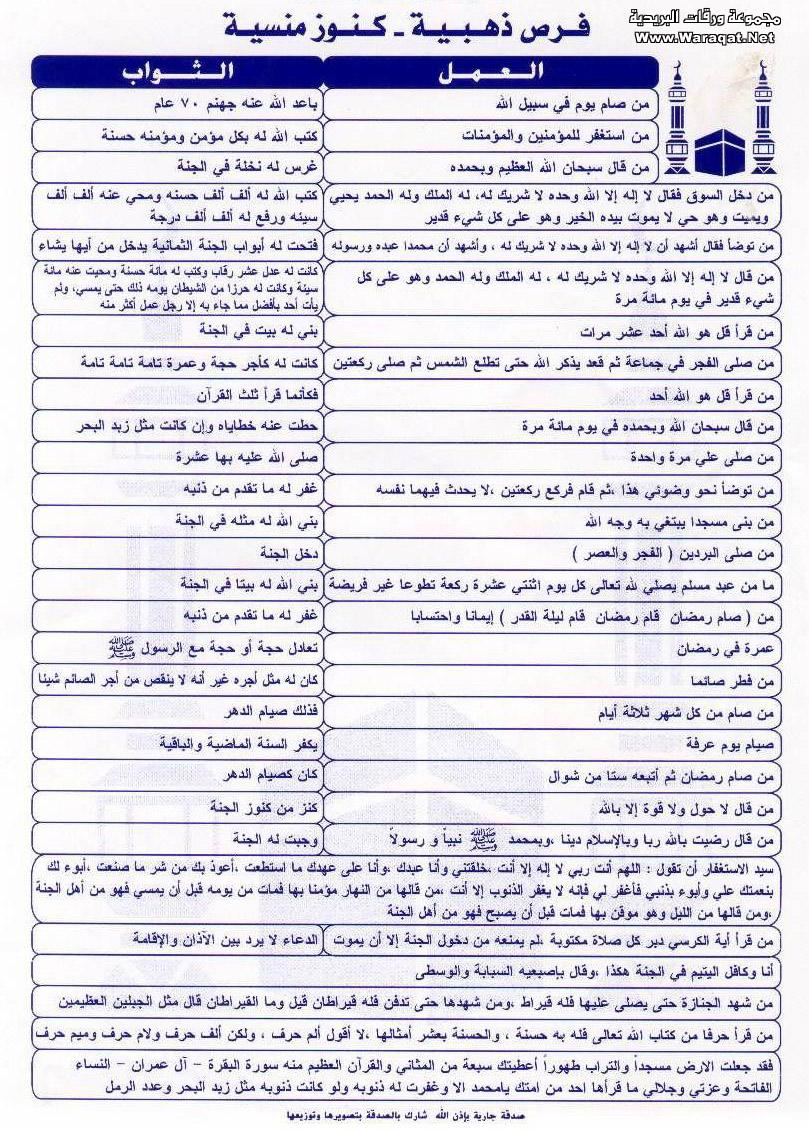 مجموعة ورقات البريدية
www.Waraqat.Net
فرص ذهبية - كنوز منسية
العمل الثواب
من صام يوم في سبيل الله باعد الله عنه جهنم ٧٠ عام
من استغفر للمؤمنين والمؤمنات كتب الله له بكل مؤمن ومؤمنه حسنة
من قال سبحان الله العظيم وبحمده غرس له نخلة في الجنة
من دخل السوق فقال لا إله إلا الله وحده لا شريك له، له الملك وله الحمد يحيي كتب الله له ألف ألف حسنه ومحي عنه ألف ألف
ويميت وهو حي لا يموت بيده الخير وهو على كل شيء قدير سيئه ورفع له ألف ألف درجة
من توضأ فقال أشهد أن لا إله إلا الله وحده لا شريك له ، وأشهد أن محمدا عبده ورسوله فتحت له أبواب الجنة الثمانية يدخل من أيها يشاء
من قال لا إله إلا الله وحده لا شريك له ، له الملك وله الحمد وهو على كل
شيء قدير في يوم مائة مرة
كانت له عدل عشر رقاب وكتب له مائة حسنة ومحيت عنه مائة
سيئة وكانت له حرزا من الشيطان يومه ذلك حتى يمسي، ولم
يأت أحد بأفضل مما جاء به إلا رجل عمل أكثر منه
من قرأ قل هو الله أحد عشر مرات بني له بيت في الجنة
من صلى الفجر في جماعة ثم قعد يذكر الله حتى تطلع الشمس ثم صلى ركعتين كانت له كأجر حجة وعمرة تامة تامة تامة
من قرأ قل هو الله أحد فكأنما قرأ ثلث القرآن
من قال سبحان الله وبحمده في يوم مائة مرة حطت عنه خطاياه وإن كانت مثل زبد البحر
من صلى علي مرة واحدة صلى الله عليه بها عشرة
من توضأ نحو وضوئي هذا ،ثم قام فركع ركعتين ،لا يحدث فيهما نفسه غفر له ما تقدم من ذنبه
من بنى مسجدا يبتغي به وجه الله بني الله له مثله في الجنة
من صلى البردين ( الفجر والعصر ) دخل الجنة
ما من عبد مسلم يصلي لله تعالى كل يوم اثنتي عشرة ركعة تطوعا غير فريضة بني الله له بيتا في الجنة
من ( صام رمضان قام رمضان قام ليلة القدر ) إيمانا واحتسابا غفر له ما تقدم من ذنبه
عمرة في رمضان تعادل حجة أو حجة مع الرسول ﷺ
من فطر صائما كان له مثل أجره غير أنه لا ينقص من أجر الصائم شيئا
من صام من كل شهر ثلاثة أيام فذلك صيام الدهر
صيام يوم عرفة يكفر السنة الماضية والباقية
من صام رمضان ثم أتبعه ستا من شوال كان كصيام الدهر
من قال لا حول ولا قوة إلا بالله كنز من كنوز الجنة
من قال رضيت بالله ربا وبالإسلام دينا ،وبمحمد ﷺ نبياً و رسولاً وجبت له الجنة
سيد الاستغفار أن تقول : اللهم أنت ربي لا إله إلا أنت ،خلقتني وأنا عبدك ،وأنا على عهدك ما استطعت ،أعوذ بك من شر ما صنعت ،أبوء لك
بنعمتك علي وأبوء بذنبي فأغفر لي فإنه لا يغفر الذنوب إلا أنت ،من قالها من النهار مؤمنا بها فمات من يومه قبل أن يمسي فهو من أهل الجنة
،ومن قالها من الليل وهو موقن بها فمات قبل أن يصبح فهو من أهل الجنة
من قرأ أية الكرسي دبر كل صلاة مكتوبة ،لم يمنعه من دخول الجنة إلا أن يموت الدعاء لا يرد بين الآذان والإقامة
أنا وكافل اليتيم في الجنة هكذا ،وقال بإصبعيه السبابة والوسطى
من شهد الجنازة حتى يصلى عليها فله قيراط ،ومن شهدها حتى تدفن فله قيراطان قيل وما القيراطان قال مثل الجبلين العظيمين
من قرأ حرفا من كتاب الله تعالى فله به حسنة ، والحسنة بعشر أمثالها ،لا أقول ألم حرف ، ولكن ألف حرف ولام حرف وميم حرف
فقد جعلت الارض مسجداً والتراب طهوراً أعطيتك سبعة من المثاني والقرآن العظيم منه سورة البقرة - آل عمران - النساء
الفاتحة وعزتي وجلالي ما قرأها احد من امتك يامحمد الا وغفرت له ذنوبه ولو كانت ذنوبه مثل زبد البحر وعدد الرمل
صدقة جارية بإذن الله شارك بالصدقة بتصويرها وتوزيعها